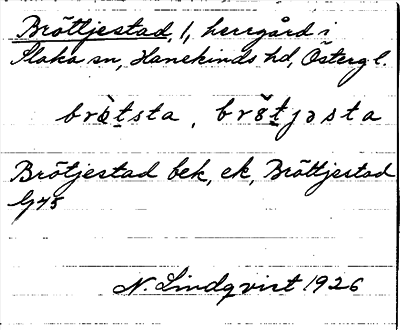 Bröttjestad, 1, herrgård i
Slaka sn, Hanekinds hd, Östergl.
brötsta, brötjəsta
Brötjestad bek, ek, Bröttjestad
G45
N. Lindqvist 1926